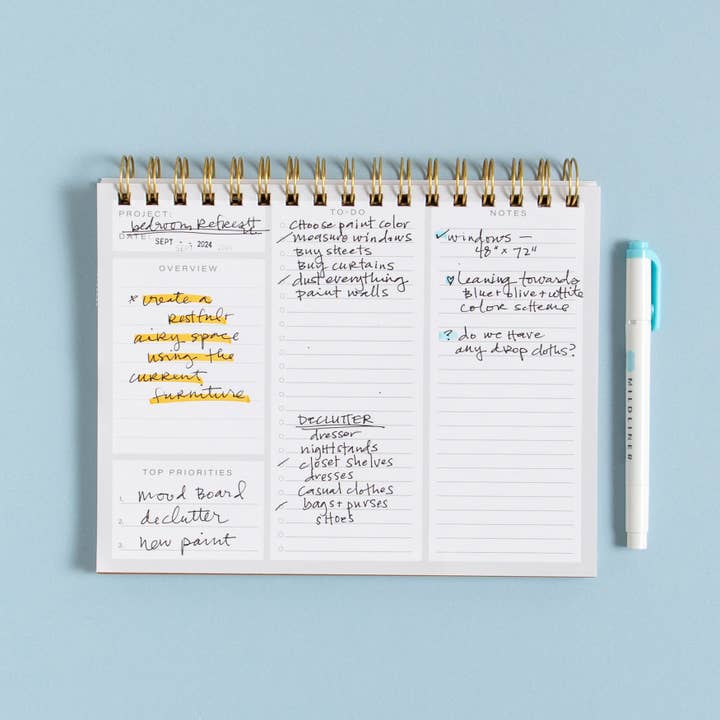 PROJECT:
bedroom Refresh
DATE:
SEPT 2024
OVERVIEW
x create a
restful +
airy space
using the
current
furniture
TOP PRIORITIES
1. mood board
2. declutter
3. new paint
TO-DO
choose paint color
measure windows
Buy sheets
Buy curtains
dust everything
paint walls
DECLUTTER
dresser
nightstands
closet shelves
dresses
casual clothes
bags + purses
shoes
NOTES
✓ windows —
48" x 72"
♡ leaning towards
Blue + olive + white
color scheme
? do we have
any drop cloths?
MILDLINER